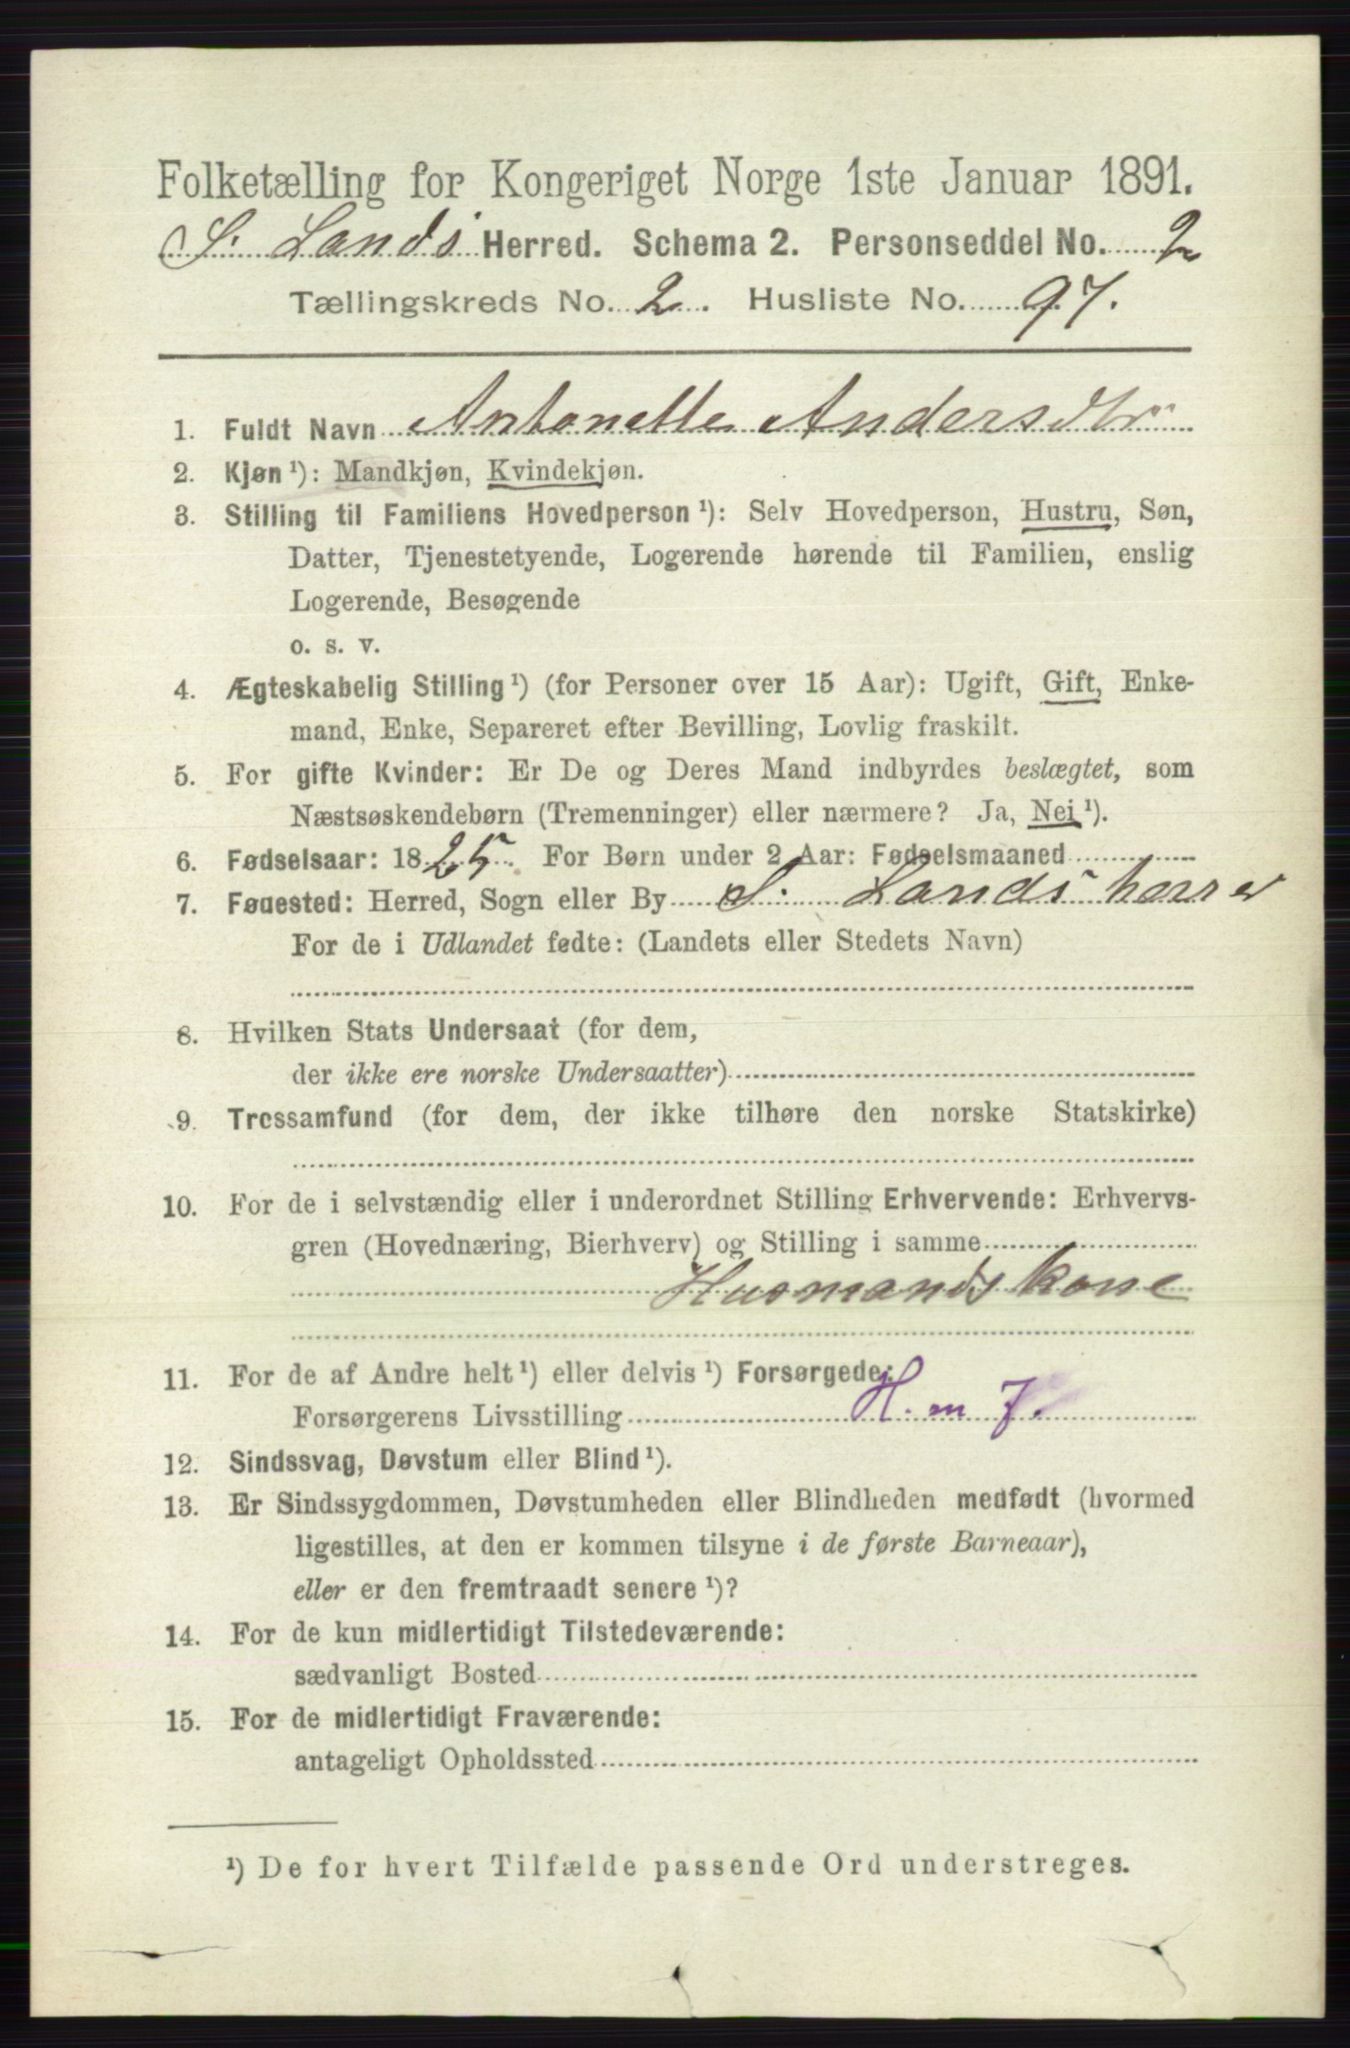 Folketælling for Kongeriget Norge 1ste Januar 1891.
S. Lands Herred. Schema 2. Personseddel No. 2
Tællingskreds No. 2. Husliste No. 97.
1. Fuldt Navn Antonette Andersdtr
2. Kjøn ¹): Mandkjøn, Kvindekjøn.
3. Stilling til Familiens Hovedperson ¹): Selv Hovedperson, Hustru, Søn,
Datter, Tjenestetyende, Logerende hørende til Familien, enslig
Logerende, Besøgende
o. s. v.
4. Ægteskabelig Stilling ¹) (for Personer over 15 Aar): Ugift, Gift, Enke-
mand, Enke, Separeret efter Bevilling, Lovlig fraskilt.
5. For gifte Kvinder: Er De og Deres Mand indbyrdes beslægtet, som
Næstsøskendebørn (Tremenninger) eller nærmere? Ja, Nei ¹).
6. Fødselsaar: 1825. For Børn under 2 Aar: Fødselsmaaned
7. Føuested: Herred, Sogn eller By S. Lands herre
For de i Udlandet fødte: (Landets eller Stedets Navn)
8. Hvilken Stats Undersaat (for dem,
der ikke ere norske Undersaatter)
9. Trossamfund (for dem, der ikke tilhøre den norske Statskirke)
10. For de i selvstændig eller i underordnet Stilling Erhvervende: Erhvervs-
gren (Hovednæring, Bierhverv) og Stilling i samme
Husmandskone
11. For de af Andre helt ¹) eller delvis ¹) Forsørgede:
Forsørgerens Livsstilling H. m J.
12. Sindssvag, Døvstum eller Blind ¹).
13. Er Sindssygdommen, Døvstumheden eller Blindheden medfødt (hvormed
ligestilles, at den er kommen tilsyne i de første Barneaar),
eller er den fremtraadt senere ¹)?
14. For de kun midlertidigt Tilstedeværende:
sædvanligt Bosted
15. For de midlertidigt Fraværende:
antageligt Opholdssted
¹) De for hvert Tilfælde passende Ord understreges.